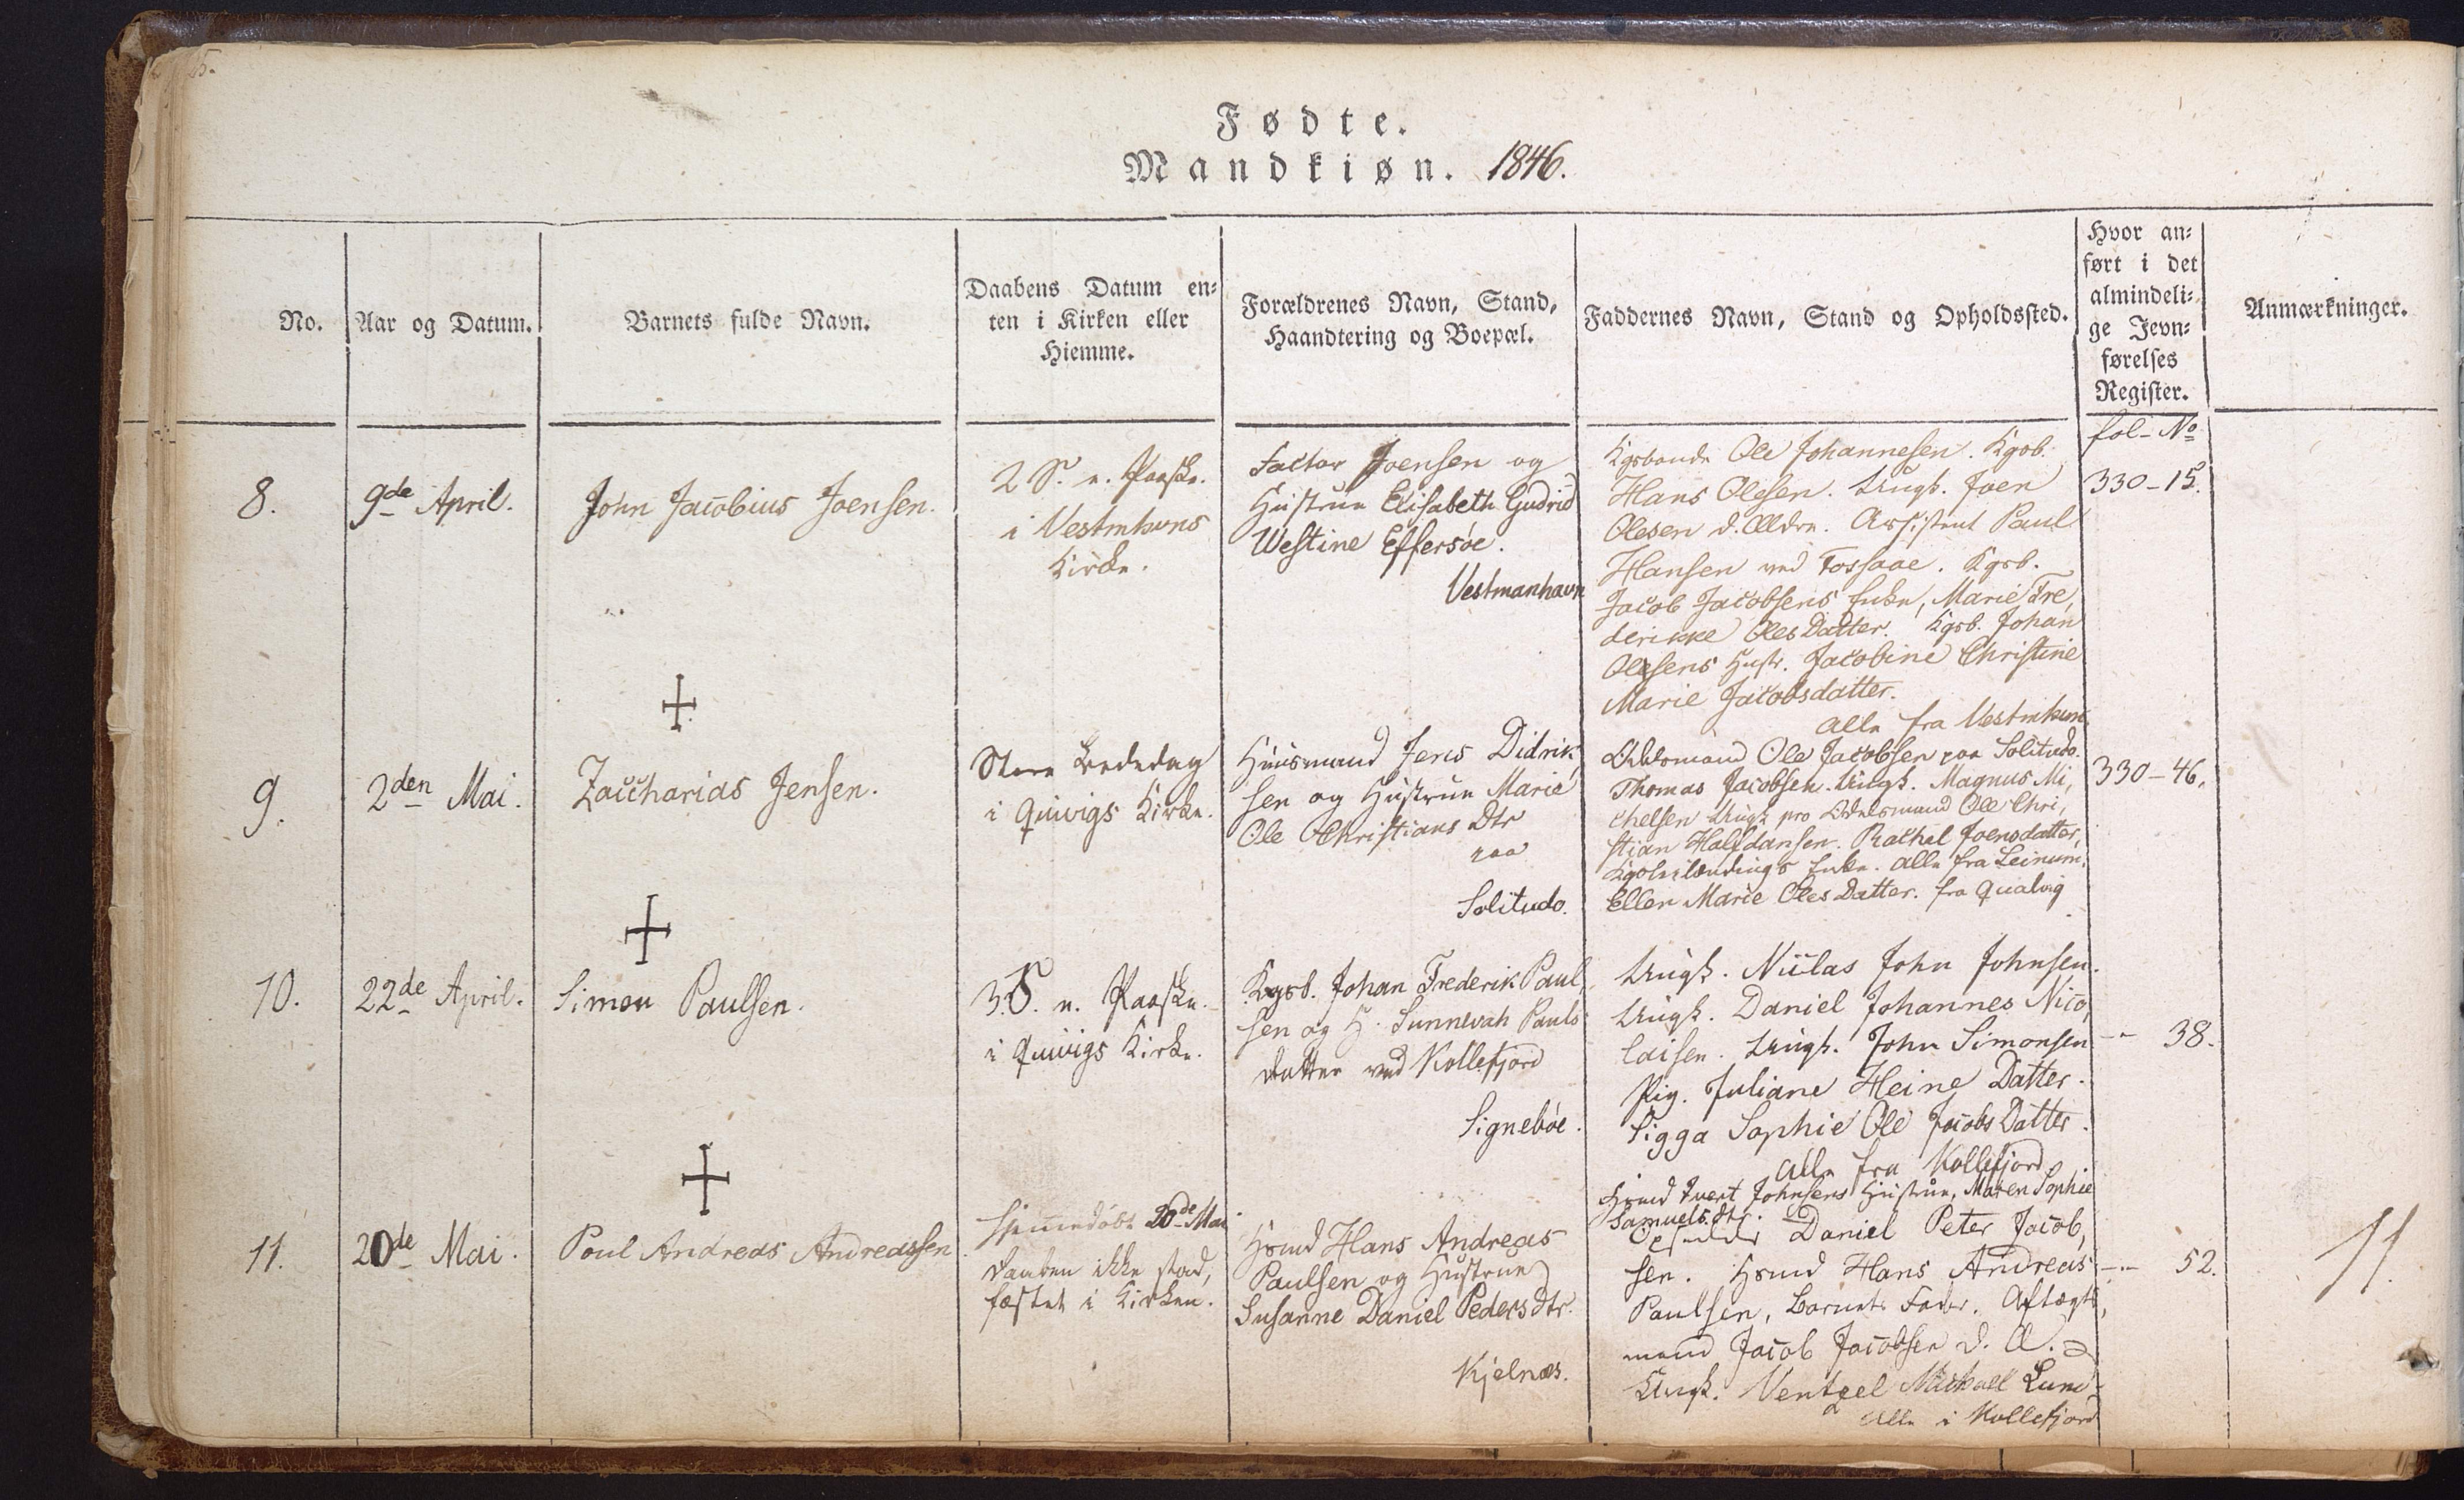 5.
Fødte.
Mandkiøn. 1846.
No.
Aar og Datum.
Barnets fulde Navn.
Daabens Datum en=
ten i Kirken eller
Hiemme.
Forældrenes Navn, Stand,
Haandtering og Boepæl.
Faddernes Navn, Stand og Opholdssted.
Hvor an=
ført i det
almindeli=
ge Jevn=
førelses
Register.
Anmærkninger.
fol- No
8.
9de April.
John Jacobius Joensen.
2 S. n. Paaske.
i Vestmhvns
Kirke.
Factor Joensen og
Hustrue Elisabeth Gudrid
Westine Effersöe.
Vestmanhavn
Kgsbonde Ole Johannesen. Kgsb.
Hans Olesen. Ungk. Joen
Olesen d. Ældre. Assistent Paul
Hansen ved Fossaae. Kgsb.
Jacob Jacobsens Enke, Marie Fre,
derikke Oles Datter. Kgsb. Johan
Olesens Hustr. Jacobine Christine
Marie Jacobsdatter.
Alle fra Vestmhvn
330-15.
9.
2den Mai.
Zaccharias Jensen.
Store Bededag
i Quivigs Kirke.
Huusmand Jens Didrik,
sen og Hustrue Marie
Ole Christians Dtr
paa
Solitudo.
Odelsmand Ole Jacobsen paa Solitudo.
Thomas Jacobsen. Ungk. Magnus Mi,
chelsen Ungk pro Odelsmand Ole Chri,
stian Halfdansen. Rachel Joensdatter,
Enke. Alle fra Leinum.
Ellen Marie Oles Datter. fra Qualvig
330-46.
10.
22de April.
Simon Paulsen.
3. S. n. Paaske.
i Quivigs Kirke.
Kgsb. Johan Frederik Paul,
sen og H. Sunnevah Pauls
datter ved Kollefjord
Signeböe.
Ungk. Niclas John Johnsen.
Ungk. Daniel Johannes Nico,
laisen. Ungk. John Simonsen
Pig. Juliane Heine Datter.
Sigga Sophie Ole Jacobs Datter.
Alle fra Kollefjord
-- 38.
11.
20de Mai.
Poul Andreas Andreassen
Hjemmedöbt 20de Mai
Daaben ikke stad,
fæstet i Kirken.
Hsmd Hans Andreas
Paulsen og Hustrue
Susanne Daniel Pedersdtr.
Kjelnæs.
Hsmd Ivert Johnsens Hustrue, Maren Sophie
Samuelsdtr.
Daniel Peter Jacob,
sen. Hsmd Hans Andreas
Paulsen, Barnets Fader. Aftægts,
mand Jacob Jacobsen d. Æ.
Ungk. Ventzel Mickael Lund
Alle i Kollefjord
-- 52.
11.